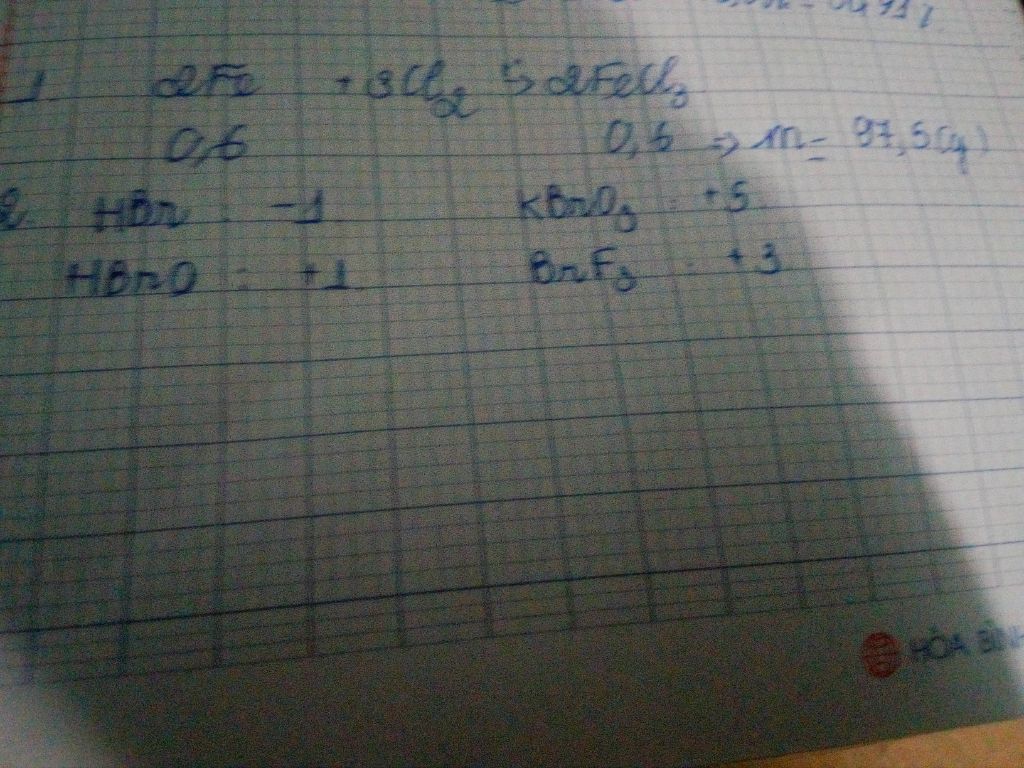 1 2Fe + 3Cl2 → 2FeCl3
0,6 0,6 => m = 97,5(g)
2 HBr : -1 KBrO3 : +5
HBrO : +1 BrF3 : +3
HÒA BÌNH